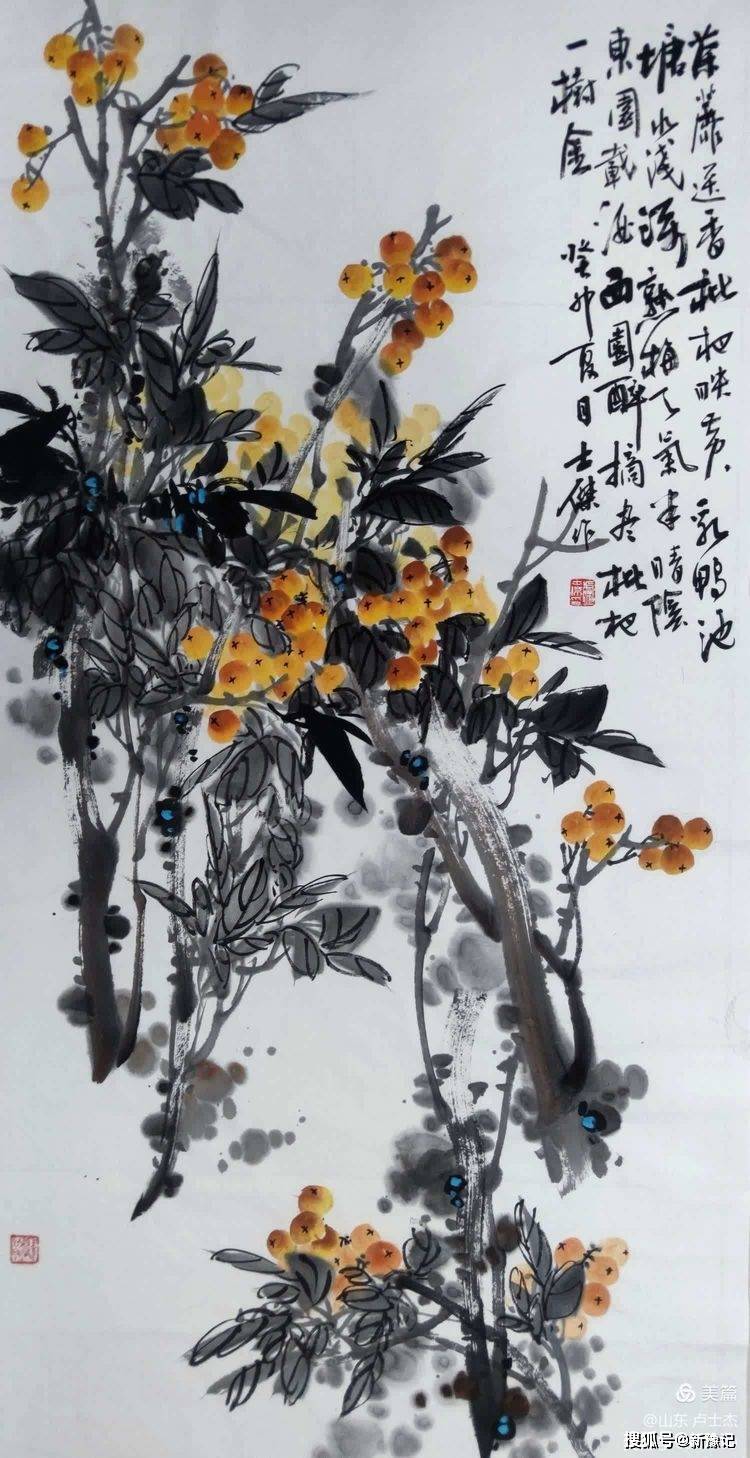 荼蘼送香枇杷映黄乳鴨池
塘水浅深熟梅天氣半晴陰
東園載酒西園醉摘尽枇杷
一樹金 癸卯夏日士傑作
美篇
@山东 卢士杰
搜狐号@新豫记